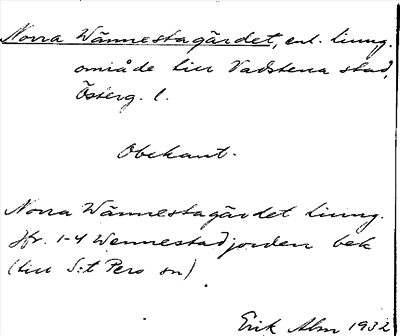 Norra Wännestagärdet, enl. liung.
område till Vadstena stad,
Österg. l.
Obekant.
Norra Wännestagärdet liung.
Jfr. 1-4 Wennestadjorden bek
(till S:t Pers sn)
Erik Alm 1932